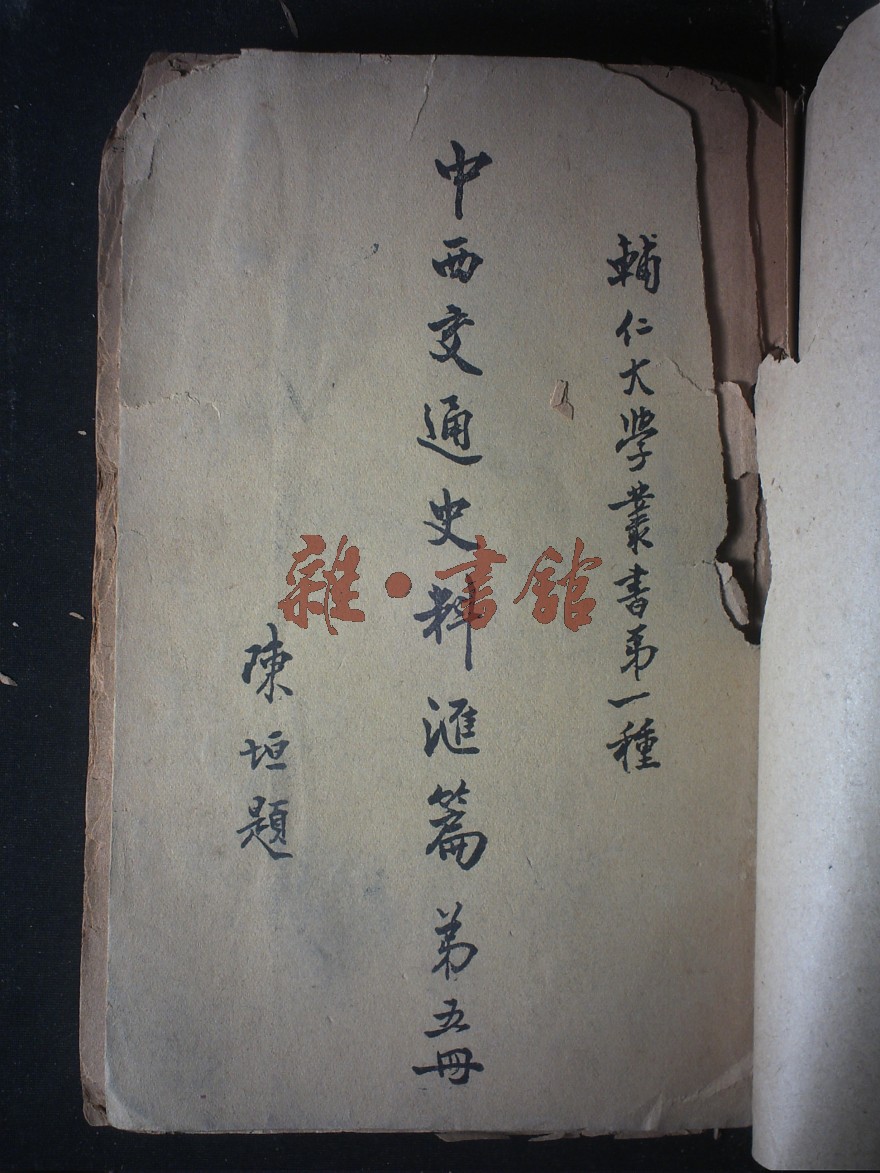 輔仁大學叢書第一種
中西交通史料滙篇第五冊
陳垣題
雜·書館